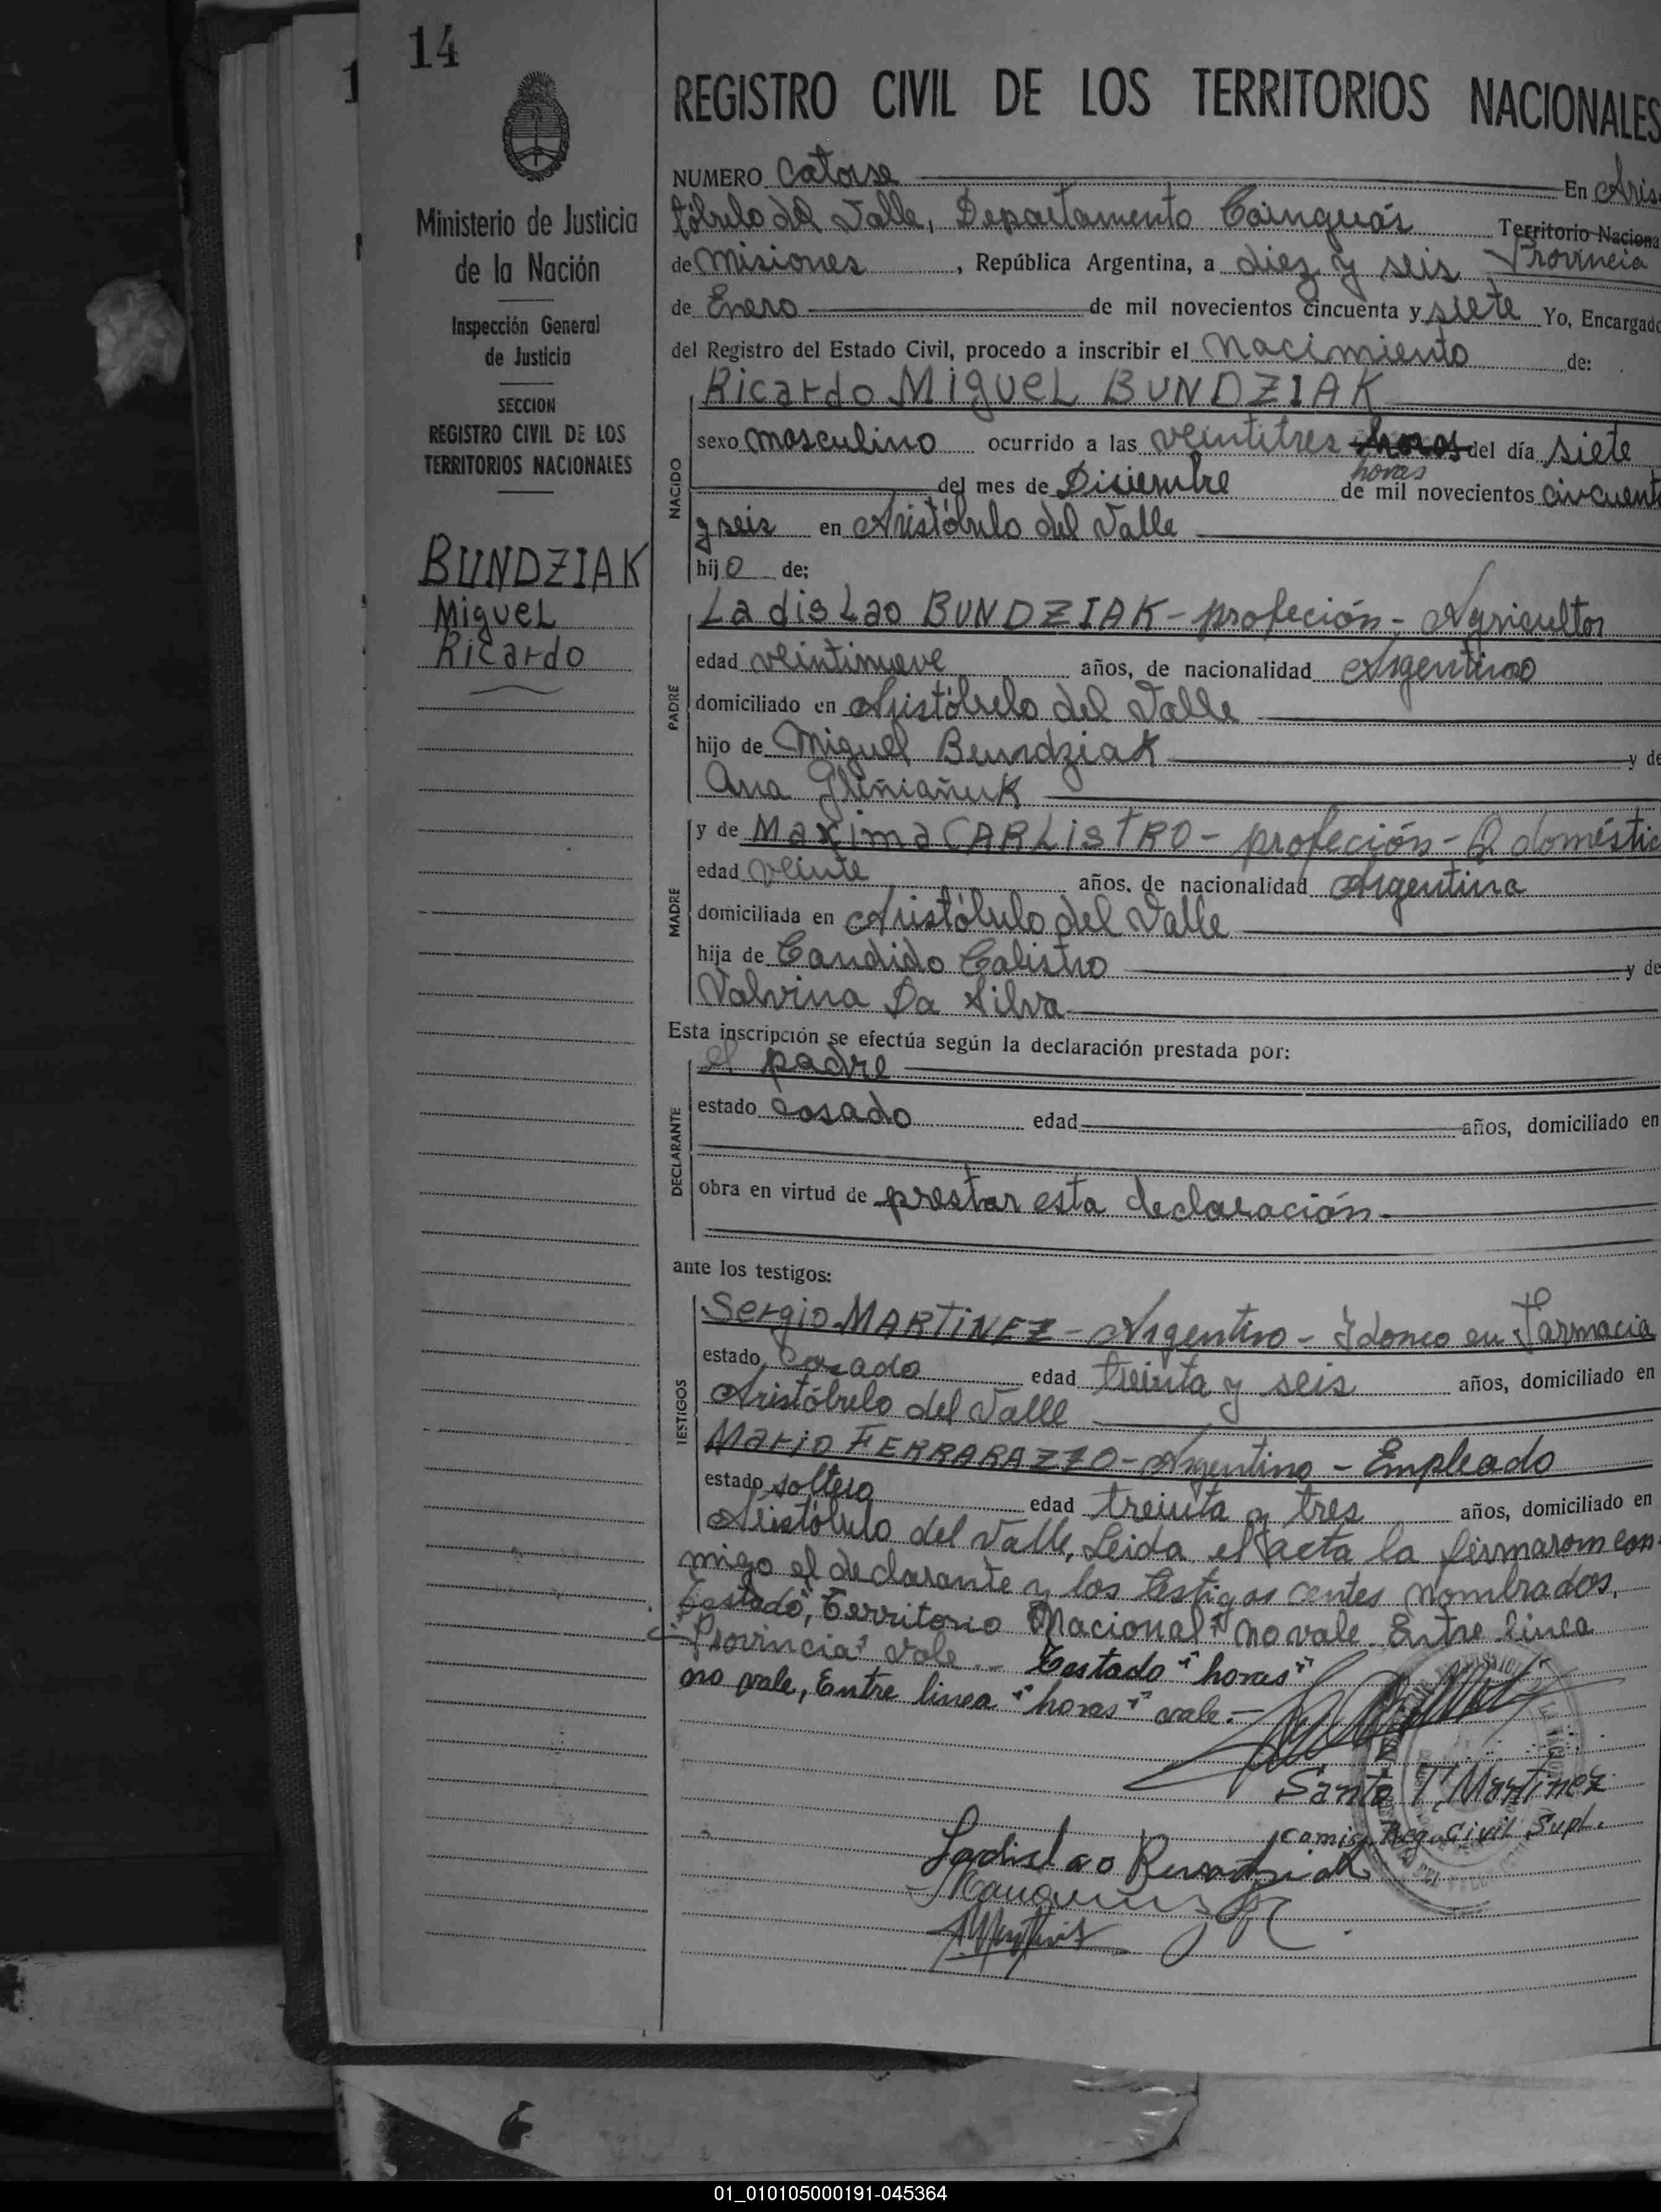 14
Ministerio de Justicia
de la Nación
Inspección General
de Justicia
SECCION
REGISTRO CIVIL DE LOS
TERRITORIOS NACIONALES
BUNDZIAK
Miguel
Ricardo
REGISTRO CIVIL DE LOS TERRITORIOS NACIONALES
NUMERO Catorse En Aris
tóbulo del Valle, Departamento Cainguás Territorio Naciona
de Misiones, República Argentina, a diez y seis Provincia
de Enero de mil novecientos cincuenta y siete Yo, Encargado
del Registro del Estado Civil, procedo a inscribir el nacimiento de:
Ricardo Miguel BUNDZIAK
NACIDO
sexo masculino ocurrido a las veintitres horas del día siete
horas
del mes de Diciembre de mil novecientos cincuent
y seis en Aristóbulo del Valle
hijo de:
PADRE
Ladislao BUNDZIAK - profeción - Agricultor
edad veintinueve años, de nacionalidad Argentino
domiciliado en Aristóbulo del Valle
hijo de Miguel Bundziak y de
Ana
MADRE
y de Maxima CARLISTRO - profeción - Q. doméstic
edad veinte años, de nacionalidad Argentina
domiciliada en Aristóbulo del Valle
hija de Candido Calistro y de
Valvina Da Silva
Esta inscripción se efectúa según la declaración prestada por:
DECLARANTE
el padre
estado casado edad años, domiciliado en
obra en virtud de prestar esta declaración
ante los testigos:
TESTIGOS
Sergio MARTINEZ - Argentino - Idoneo en Farmacia
estado Casado edad treinta y seis años, domiciliado en
Aristóbulo del Valle
Mario FERRARAZZO - Argentino - Empleado
estado soltero edad treinta y tres años, domiciliado en
Aristóbulo del Valle, Leida el acta la firmarom con
migo el declarante y los testigos centes nombrados,
Testado, "Territorio Nacional" no vale. Entre linea
"Provincia" vale. - Testado "horas"
no vale, Entre linea "horas" vale. -
Santo T. Martinez
comis. Reg. Civil Supl.
Ladislao Bundziak
01_010105000191-045364